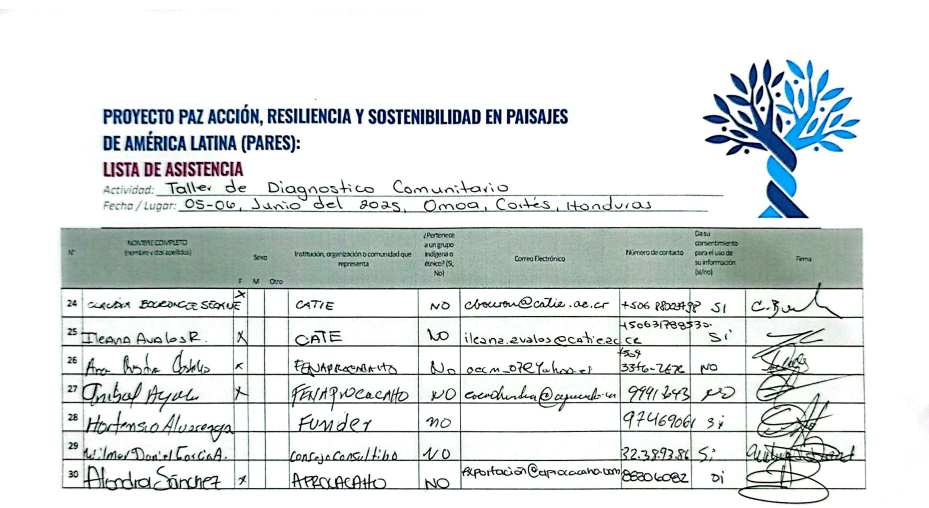 PROYECTO PAZ ACCIÓN, RESILIENCIA Y SOSTENIBILIDAD EN PAISAJES
DE AMÉRICA LATINA (PARES):
LISTA DE ASISTENCIA
Actividad: Taller de Diagnostico Comunitario
Fecha / Lugar: 05-06, Junio del 2025, Omoa, Cortés, Honduras
N° NOMBRE COMPLETO (nombre y dos apellidos) Sexo F M Otro Institución, organización o comunidad que representa ¿Pertenece a un grupo Indígena o étnico? (Si, No) Correo Electrónico Número de contacto Da su consentimiento para el uso de su información (si/no) Firma
24 CLAUDIA X CATIE NO +506 SI
25 Ileana Avalos R. X CATIE NO ileana.avalos@catie.ac.cr Si
26 Ana x No +504 NO
27 Anibal Ayala X NO NO
28 Hortensio Alvarenga Funder no 97469061 si
29 Wilmer Daniel Garcia A. consejo Consultibo NO 32.38.93.86 Si
30 Alondra Sánchez x APROCACAHO NO 88806082 Si